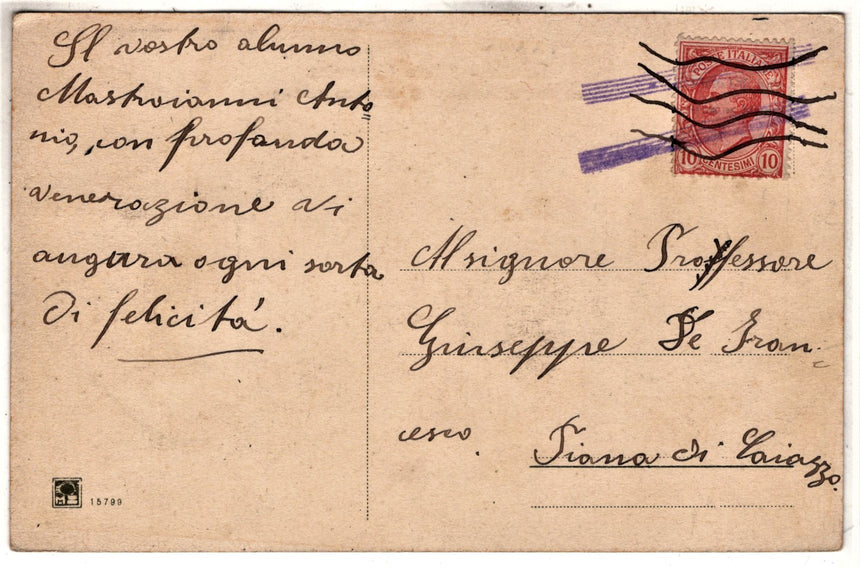 Il vostro alunno
Mastroianni Anto=
nio, con profonda
venerazione vi
augura ogni sorta
di felicità.
POSTE ITALIANE
10 CENTESIMI 10
Al signore Professore
Giuseppe De Fran-
cesco
Piana di Caiazzo.
M
15799